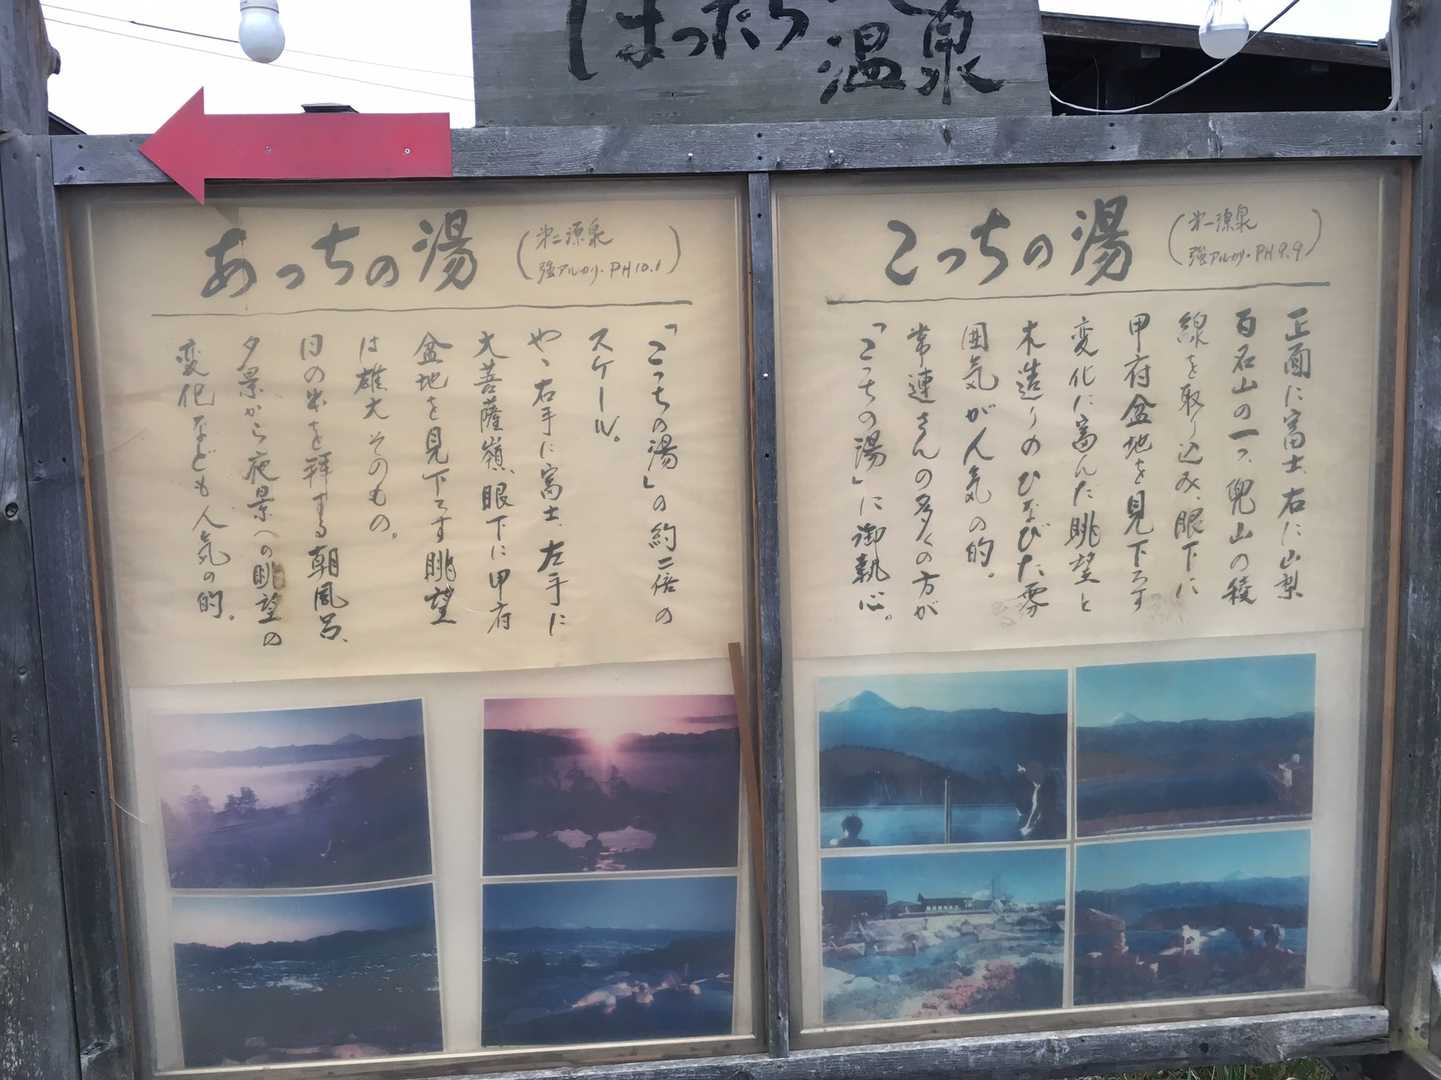 ほったらか温泉
こっちの湯
(第一源泉
強アルカリ・PH9.9)
正面に富士、右に山梨
百名山の一つ、兜山の稜
線を取り込み、眼下に
甲府盆地を見下ろす
変化に富んだ眺望と
木造りのひなびた雰
囲気が人気の的。
常連さんの多くの方が
「こっちの湯」に御執心。
あっちの湯
(第二源泉
強アルカリ・PH10.1)
「こっちの湯」の約二倍の
スケール。
やゝ右手に富士、左手に
大菩薩嶺、眼下に甲府
盆地を見下ろす眺望
は雄大そのもの。
日の出を拝する朝風呂、
夕景から夜景への眺望の
変化なども人気の的。